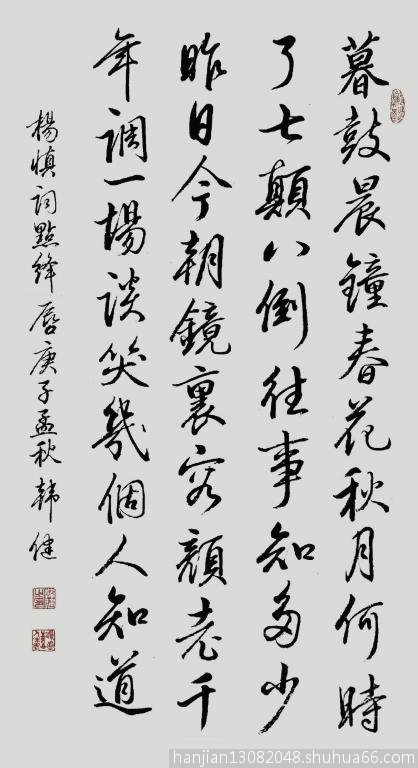 暮鼓晨鐘春花秋月何時
了七顛八倒往事知多少
昨日今朝鏡裏容顏老千
年調一場談笑幾個人知道
楊慎詞點絳唇庚子孟秋韓健
hanjian13082048.shuhua66.com